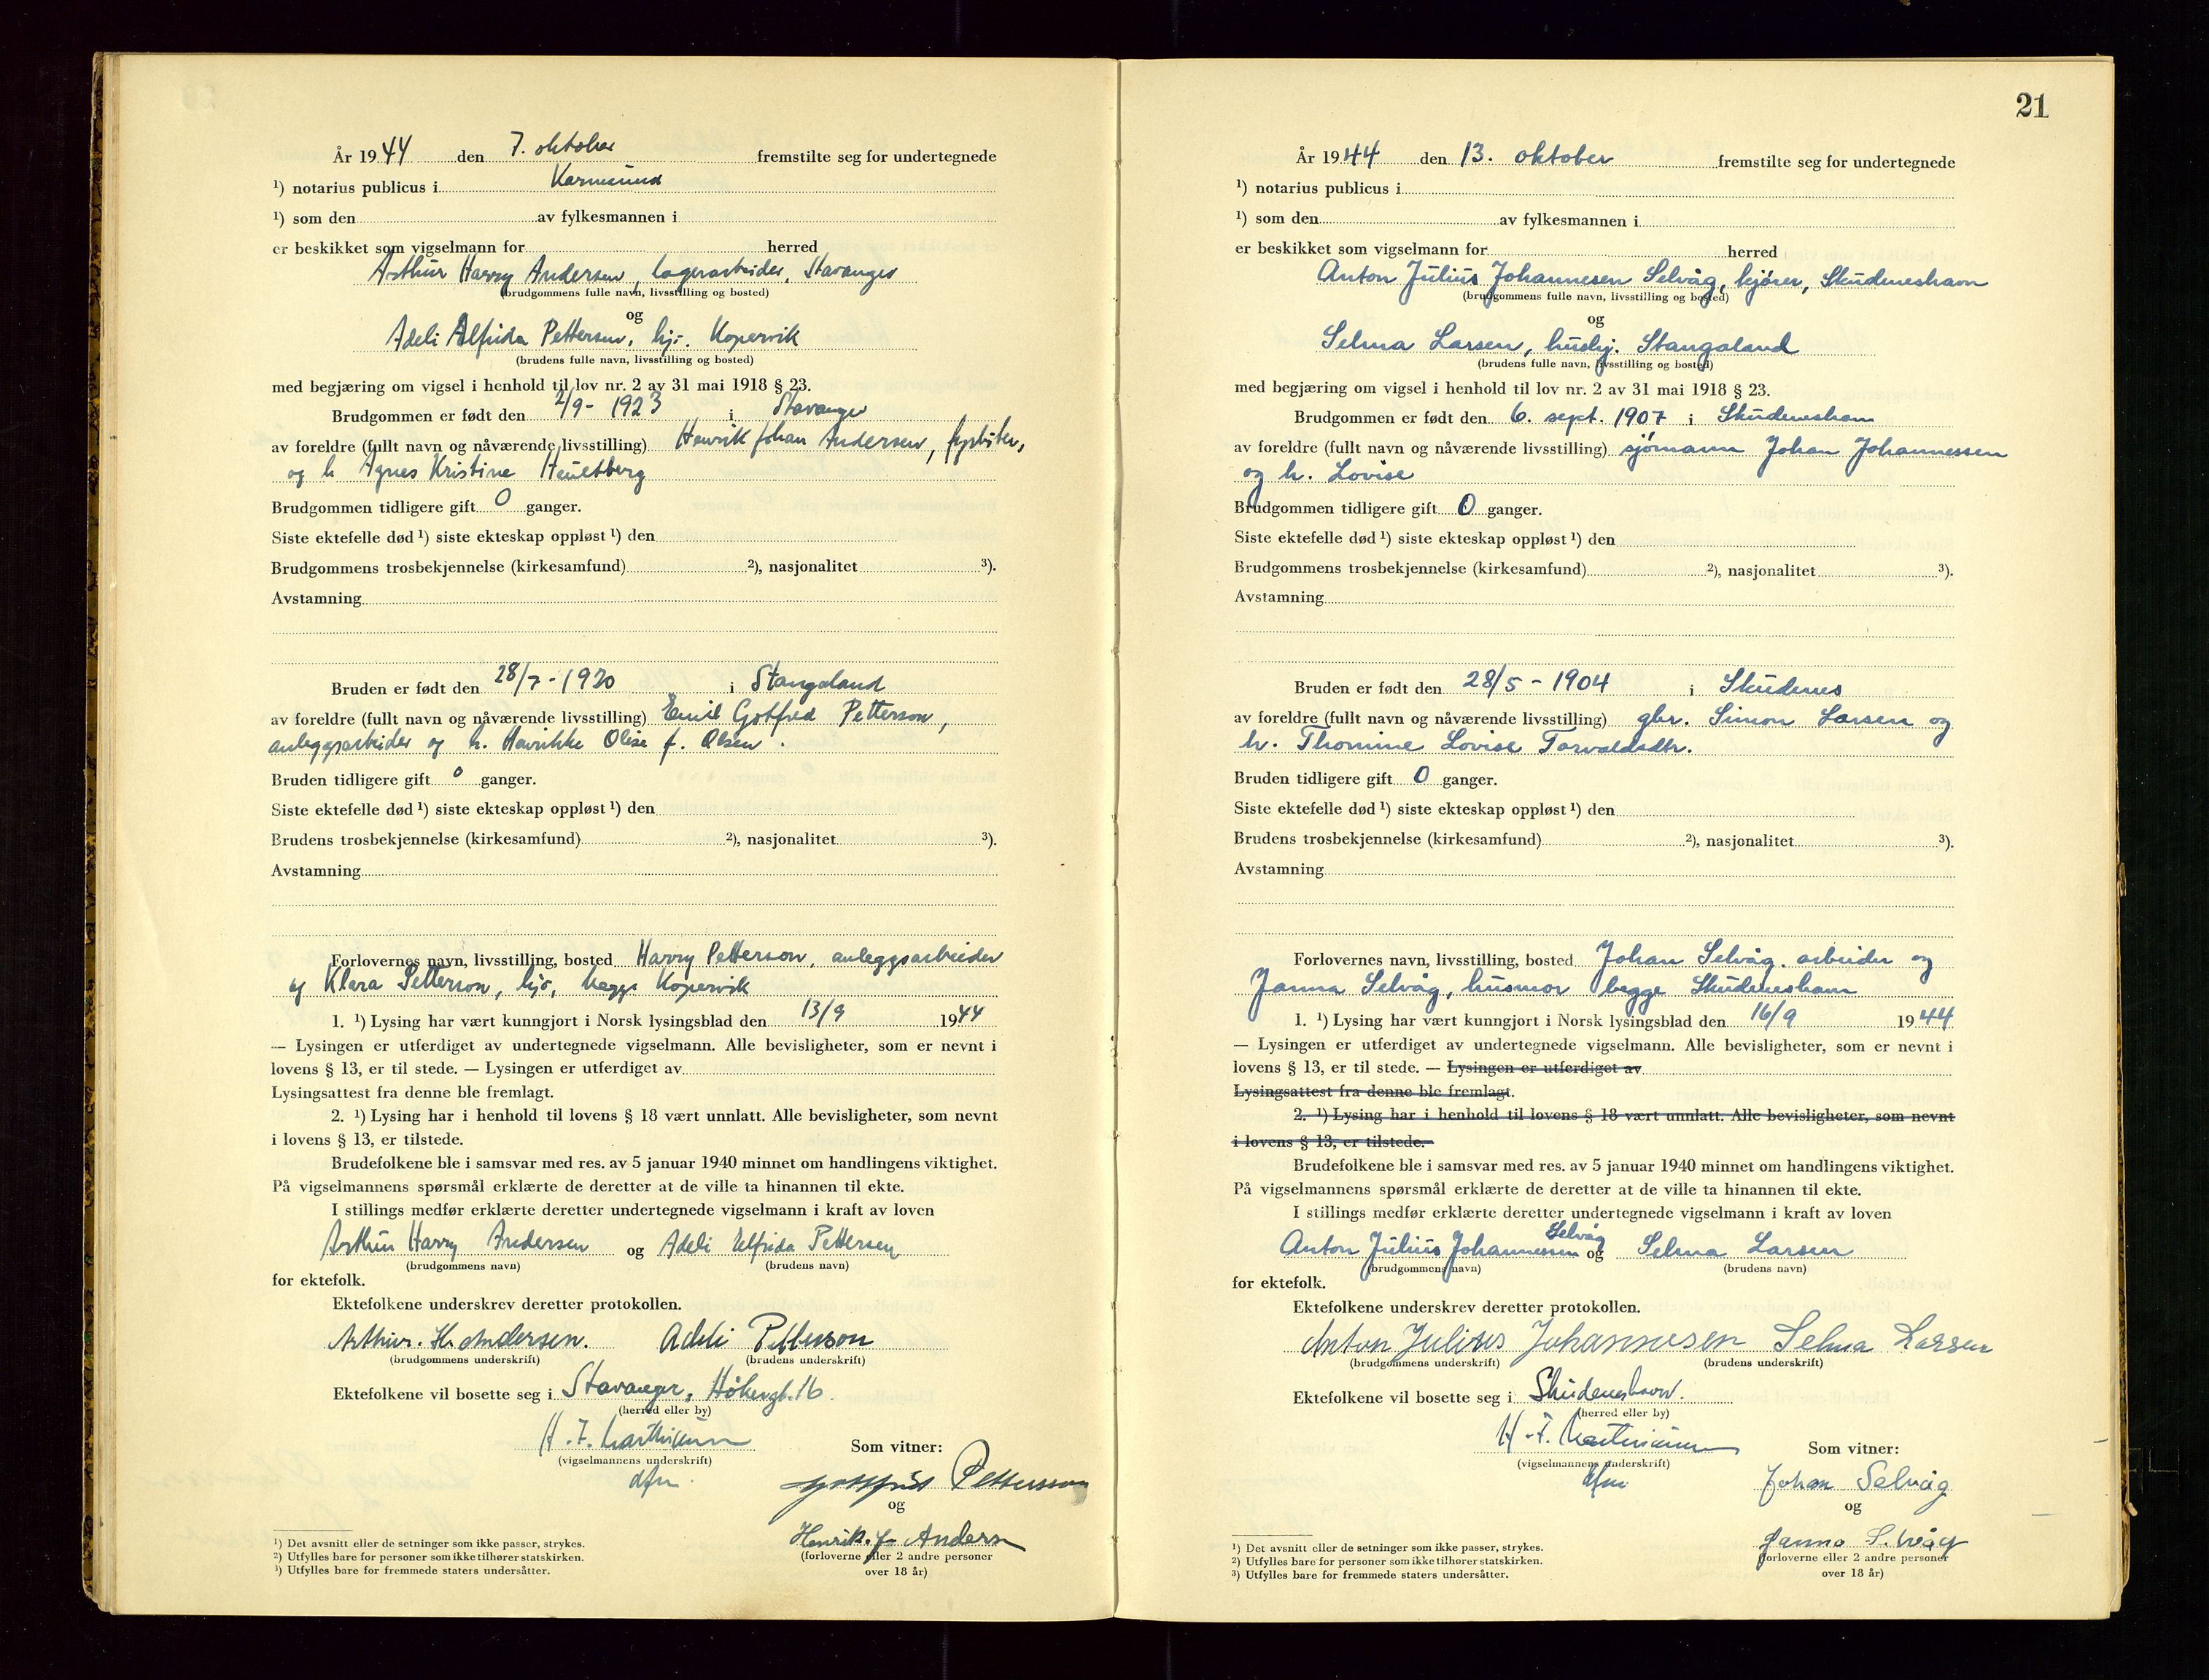 År 1944 den 7. oktober fremstilte seg for undertegnede
¹) notarius publicus i Karmsund
¹) som den av fylkesmannen i
er beskikket som vigselmann for herred
Arthur Harry Andersen, lagerarbeider, Stavanger
(brudgommens fulle navn, livsstilling og bosted)
og
Adeli Alfrida Pettersen, hjv. Kopervik
(brudens fulle navn, livsstilling og bosted)
med begjæring om vigsel i henhold til lov nr. 2 av 31 mai 1918 § 23.
Brudgommen er født den 2/9 - 1923 i Stavanger
av foreldre (fullt navn og nåværende livsstilling) Henrik Johan Andersen, fyrbøter,
og h. Agnes Kristine
Brudgommen tidligere gift 0 ganger.
Siste ektefelle død ¹) siste ekteskap oppløst ¹) den
Brudgommens trosbekjennelse (kirkesamfund) ²), nasjonalitet ³).
Avstamning
Bruden er født den 28/7 - 1920 i Stangaland
av foreldre (fullt navn og nåværende livsstilling) Emil Gotfred Petterson,
anleggsarbeider og h. Henrikke Olise f. Olsen.
Bruden tidligere gift 0 ganger.
Siste ektefelle død ¹) siste ekteskap oppløst ¹) den
Brudens trosbekjennelse (kirkesamfund) ²), nasjonalitet ³).
Avstamning
Forlovernes navn, livsstilling, bosted Harry Petterson, anleggsarbeider
og Klara Petterson, hjv, begge Kopervik
1. ¹) Lysing har vært kunngjort i Norsk lysingsblad den 13/9 1944
— Lysingen er utferdiget av undertegnede vigselmann. Alle bevisligheter, som er nevnt i
lovens § 13, er til stede. — Lysingen er utferdiget av
Lysingsattest fra denne ble fremlagt.
2. ¹) Lysing har i henhold til lovens § 18 vært unnlatt. Alle bevisligheter, som nevnt
i lovens § 13, er tilstede.
Brudefolkene ble i samsvar med res. av 5 januar 1940 minnet om handlingens viktighet.
På vigselmannens spørsmål erklærte de deretter at de ville ta hinannen til ekte.
I stillings medfør erklærte deretter undertegnede vigselmann i kraft av loven
Arthur Harry Andersen og Adeli Alfrida Pettersen
(brudgommens navn) (brudens navn)
for ektefolk.
Ektefolkene underskrev deretter protokollen.
Arthur. H. Andersen. Adeli Petterson
(brudgommens underskrift) (brudens underskrift)
Ektefolkene vil bosette seg i Stavanger, 16.
(herred eller by)
H. F.
(vigselmannens underskrift)
dfm.
Som vitner:
Gottfred Petterson
og
Henrik. J. Andersen
(forloverne eller 2 andre personer
over 18 år)
¹) Det avsnitt eller de setninger som ikke passer, strykes.
²) Utfylles bare for personer som ikke tilhører statskirken.
³) Utfylles bare for fremmede staters undersåtter.
21
År 1944 den 13. oktober fremstilte seg for undertegnede
¹) notarius publicus i
¹) som den av fylkesmannen i
er beskikket som vigselmann for herred
Anton Julius Johannesen Selvåg, kjører, Skudeneshavn
(brudgommens fulle navn, livsstilling og bosted)
og
Selma Larsen, hushj. Stangaland
(brudens fulle navn, livsstilling og bosted)
med begjæring om vigsel i henhold til lov nr. 2 av 31 mai 1918 § 23.
Brudgommen er født den 6. sept. 1907 i Skudeneshavn
av foreldre (fullt navn og nåværende livsstilling) sjømann Johan Johannessen
og h. Lovise
Brudgommen tidligere gift 0 ganger.
Siste ektefelle død ¹) siste ekteskap oppløst ¹) den
Brudgommens trosbekjennelse (kirkesamfund) ²), nasjonalitet ³).
Avstamning
Bruden er født den 28/5 - 1904 i Skudenes
av foreldre (fullt navn og nåværende livsstilling) gbr. Simon Larsen og
h. Thomine Lovise Torvaldsdtr.
Bruden tidligere gift 0 ganger.
Siste ektefelle død ¹) siste ekteskap oppløst ¹) den
Brudens trosbekjennelse (kirkesamfund) ²), nasjonalitet ³).
Avstamning
Forlovernes navn, livsstilling, bosted Johan Selvåg, arbeider og
Janna Selvåg, husmor begge Skudeneshavn
1. ¹) Lysing har vært kunngjort i Norsk lysingsblad den 16/9 1944
— Lysingen er utferdiget av undertegnede vigselmann. Alle bevisligheter, som er nevnt i
lovens § 13, er til stede. — Lysingen er utferdiget av
Lysingsattest fra denne ble fremlagt.
2. ¹) Lysing har i henhold til lovens § 18 vært unnlatt. Alle bevisligheter, som nevnt
i lovens § 13, er tilstede.
Brudefolkene ble i samsvar med res. av 5 januar 1940 minnet om handlingens viktighet.
På vigselmannens spørsmål erklærte de deretter at de ville ta hinannen til ekte.
I stillings medfør erklærte deretter undertegnede vigselmann i kraft av loven
Anton Julius Johannessen Selvåg og Selma Larsen
(brudgommens navn) (brudens navn)
for ektefolk.
Ektefolkene underskrev deretter protokollen.
Anton Julius Johannesen Selma Larsen
(brudgommens underskrift) (brudens underskrift)
Ektefolkene vil bosette seg i Skudeneshavn.
(herred eller by)
H. F.
(vigselmannens underskrift)
dfm
Som vitner:
Johan Selvåg
og
Janna Selvåg
(forloverne eller 2 andre personer
over 18 år)
¹) Det avsnitt eller de setninger som ikke passer, strykes.
²) Utfylles bare for personer som ikke tilhører statskirken.
³) Utfylles bare for fremmede staters undersåtter.